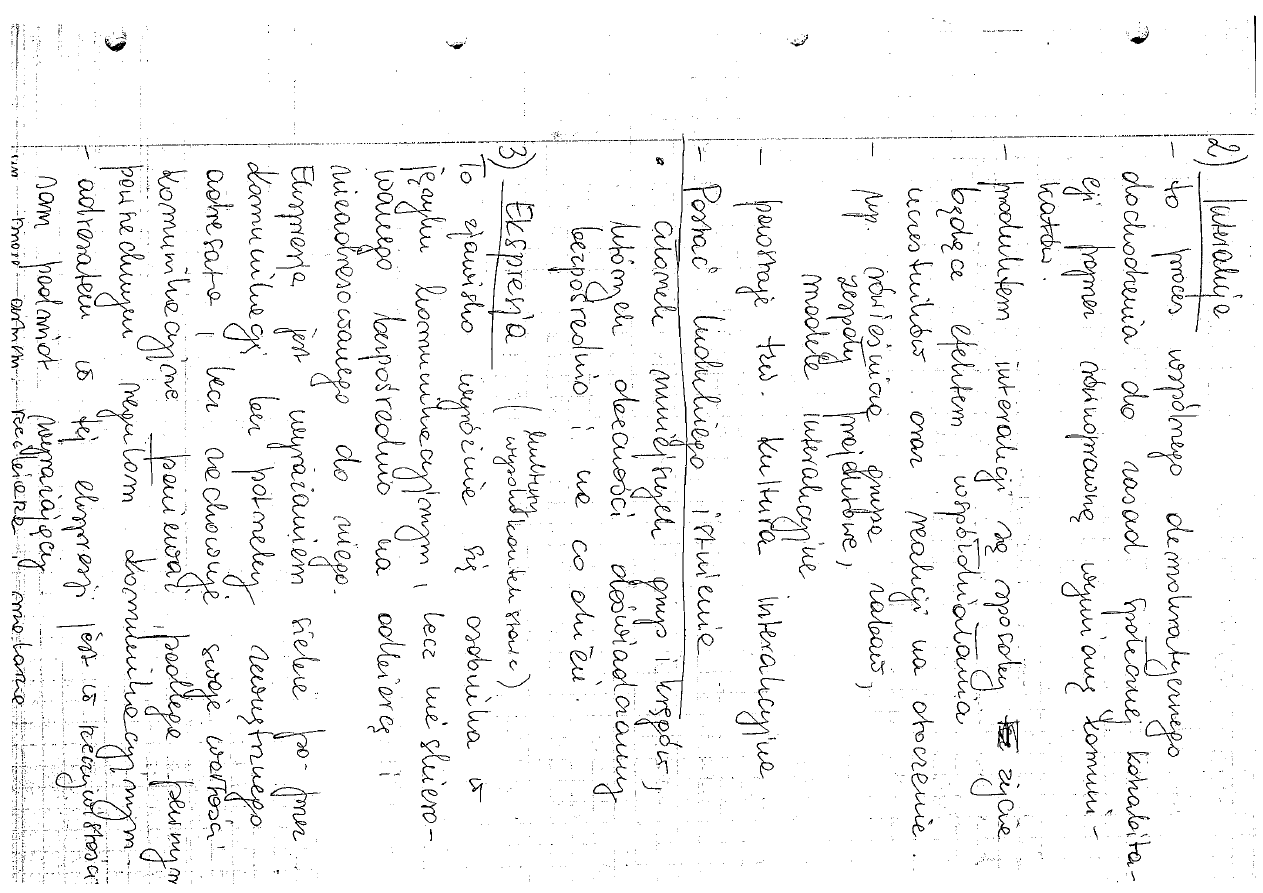 2) Interakcje
- to proces wspólnego demokratycznego
dochodzenia do zasad społecznej kohabita-
cji poprzez równoprawną wymianę komuni-
katów.
- produktem interakcji są sposoby życia
będące efektem współdziałania
uczestników oraz reakcji na otoczenie.
- np. rówieśnicza grupa zabaw,
zespoły projektowe,
modele interakcyjne
- powstaje tzw. kultura interakcyjna
- Postać ludzkiego istnienia
• członek mniejszych grup i kręgów,
których obecności doświadczamy
bezpośrednio i na co dzień.
3) Ekspresja (kultury
wyższokontekstowe)
To zjawisko wyróżnia się osobnika w
języku komunikacyjnym, lecz nie skiero-
wanego bezpośrednio na odbiorcę i
nieadresowanego do niego.
Ekspresja jest wyrażaniem siebie po-przez
komunikację bez potrzeby zewnętrznego
adresata, lecz zachowuje swoje wartości
komunikacyjne ponieważ podlega pewnym
powszechnym regułom komunikacyjnym -
- adresatem w tej ekspresji jest w rzeczywistości
sam podmiot wyrażający.